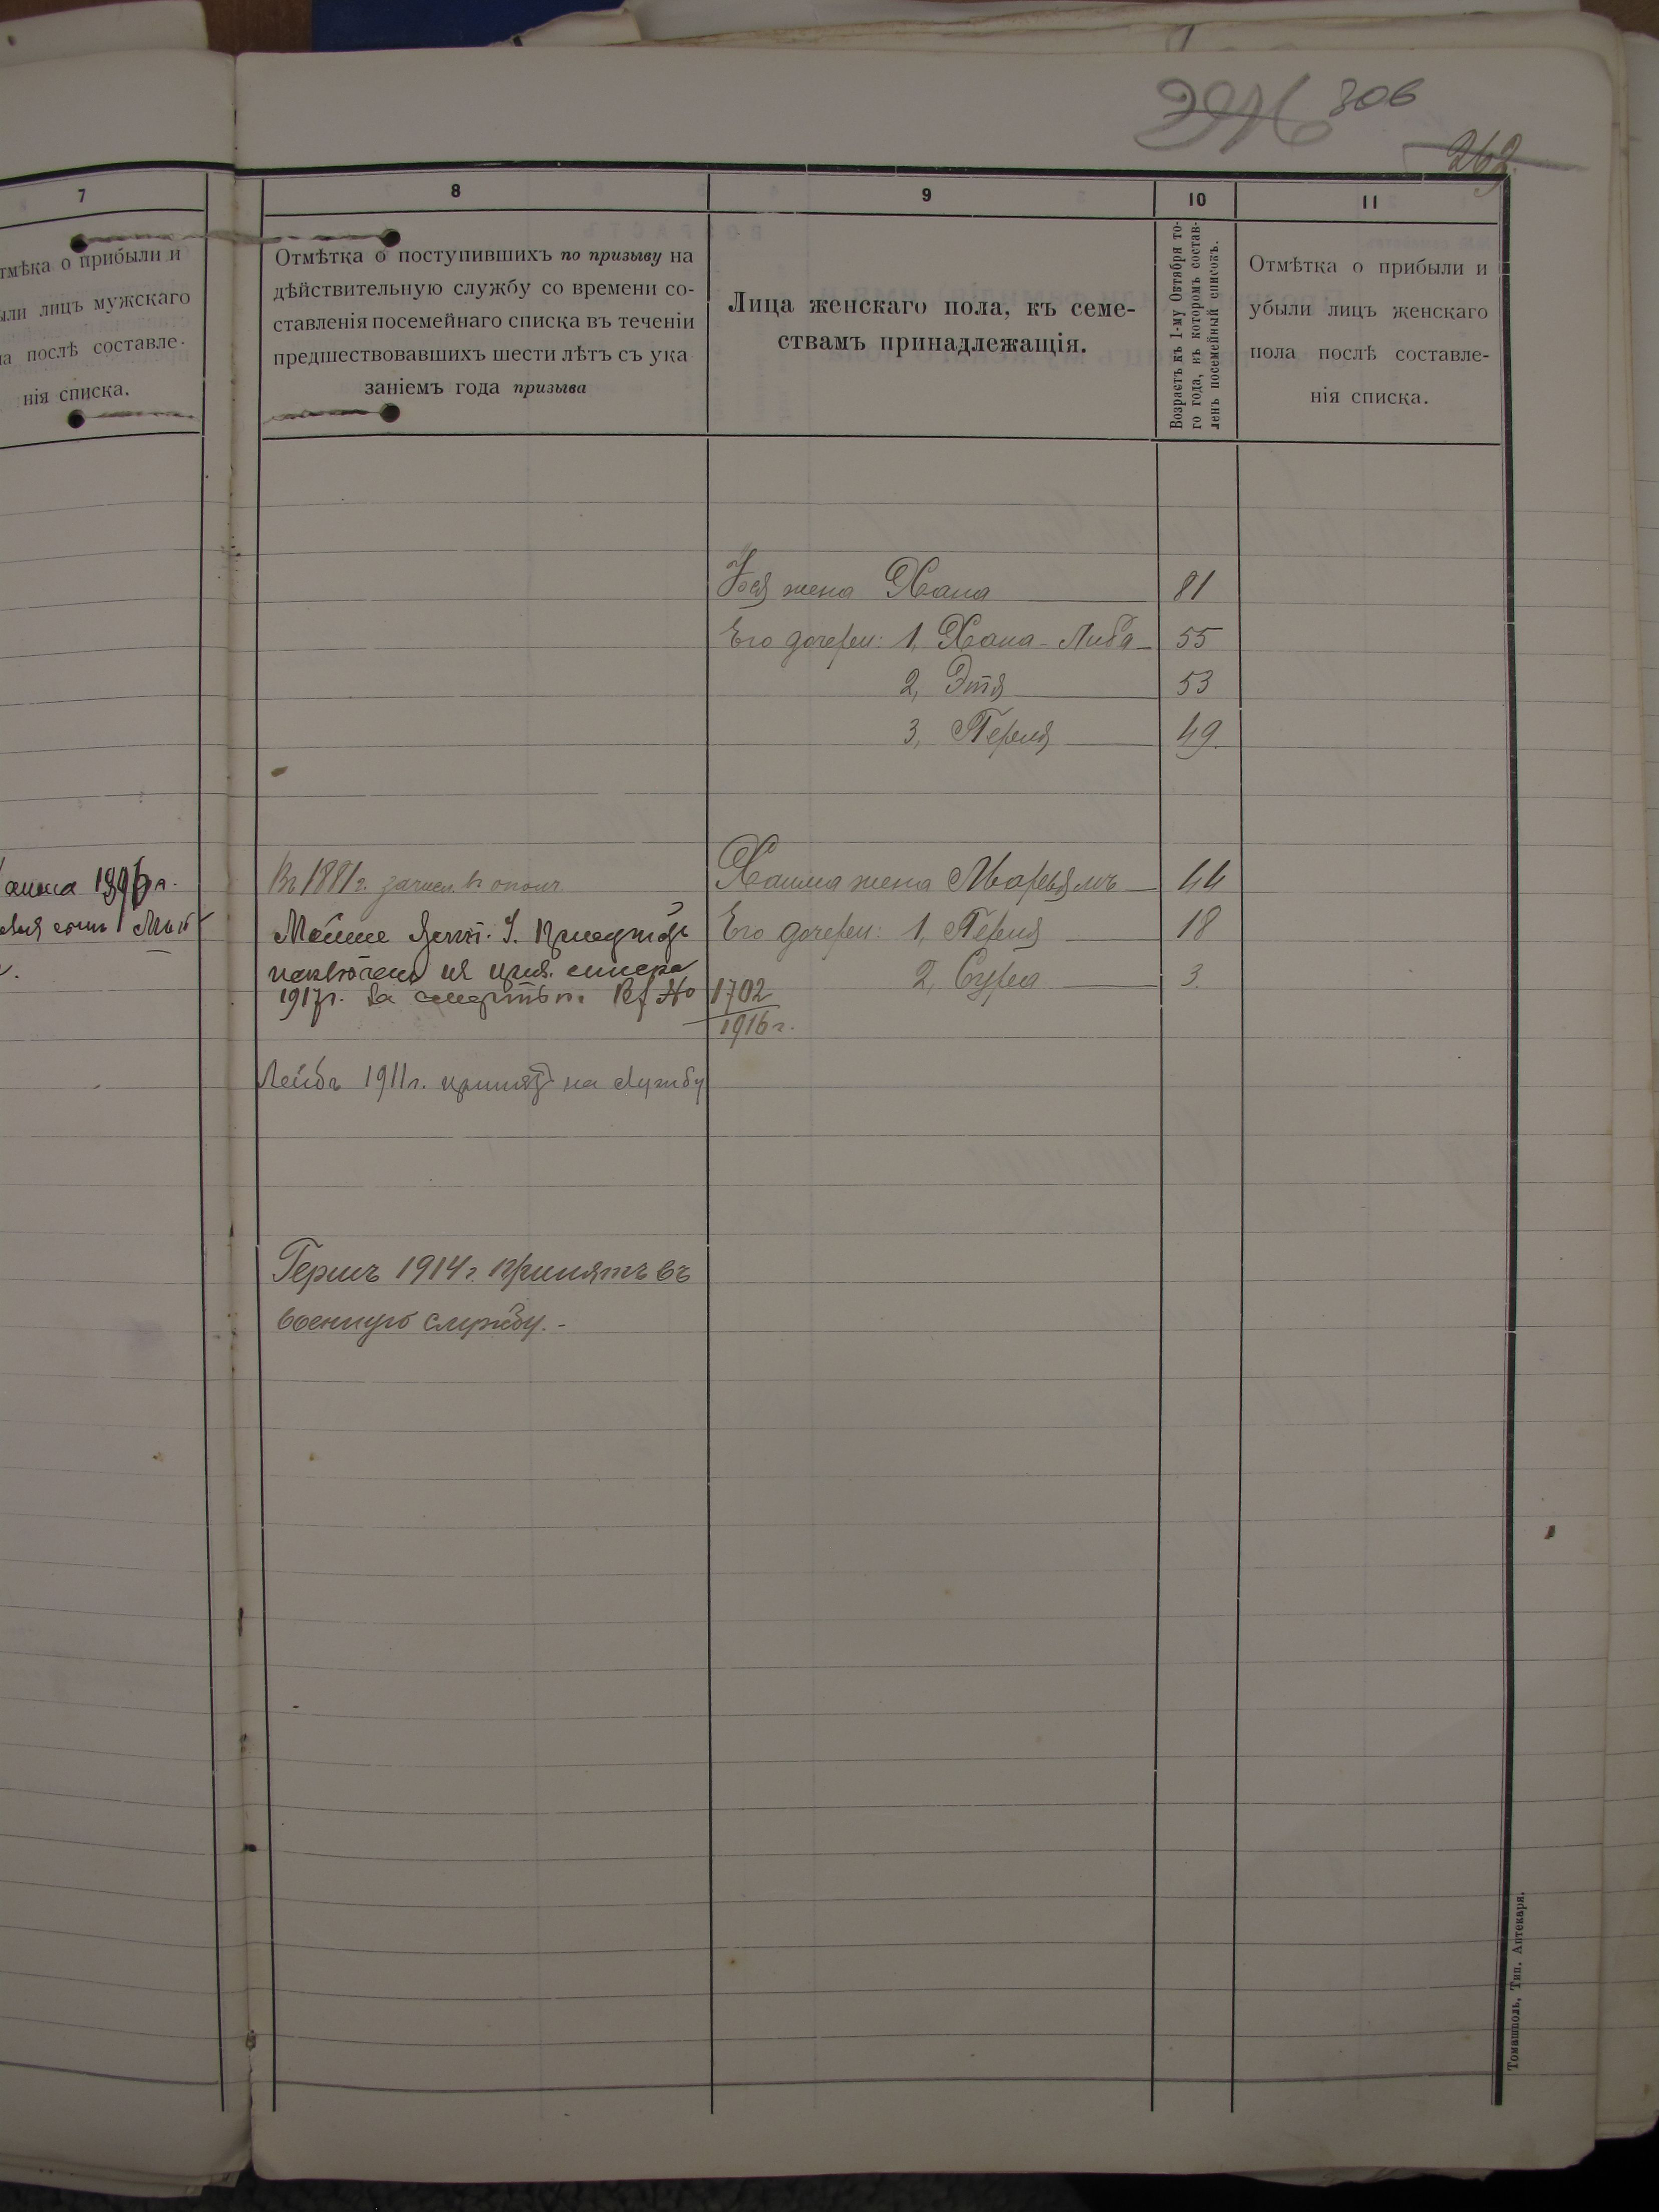 306
269.
7
тмѣка о прибыли и
ыли лицъ мужскаго
ла послѣ составле-
нія списка.
8
Отмѣтка о поступившихъ по призыву на
дѣйствительную службу со времени со-
ставленія посемейнаго списка въ теченіи
предшествовавшихъ шести лѣтъ съ ука
заніемъ года призыва
9
Лица женскаго пола, къ семе-
ствамъ принадлежащія.
10
Возрастъ къ 1-му Октября то-
го года, къ которомъ состав-
ленъ посемейный списокъ.
11
Отмѣтка о прибыли и
убыли лицъ женскаго
пола послѣ составле-
нія списка.
жена Хана 81
Его дочери: 1, Хана-Либа 55
2, Этя 53
3, Перля 49.
Въ 1881 г. зачисл. в ополч
Хаима жена Марьямъ 44
Его дочери: 1, Перля 18
2, Сура 3.
исключенъ из приз. списка
1917 г. за смертью №
1702
1916 г.
Лейбъ 1911 г. принятъ на службу
Гершъ 1914 г. принятъ въ
военную службу.-
Томашполь, Тип. Аптекаря.